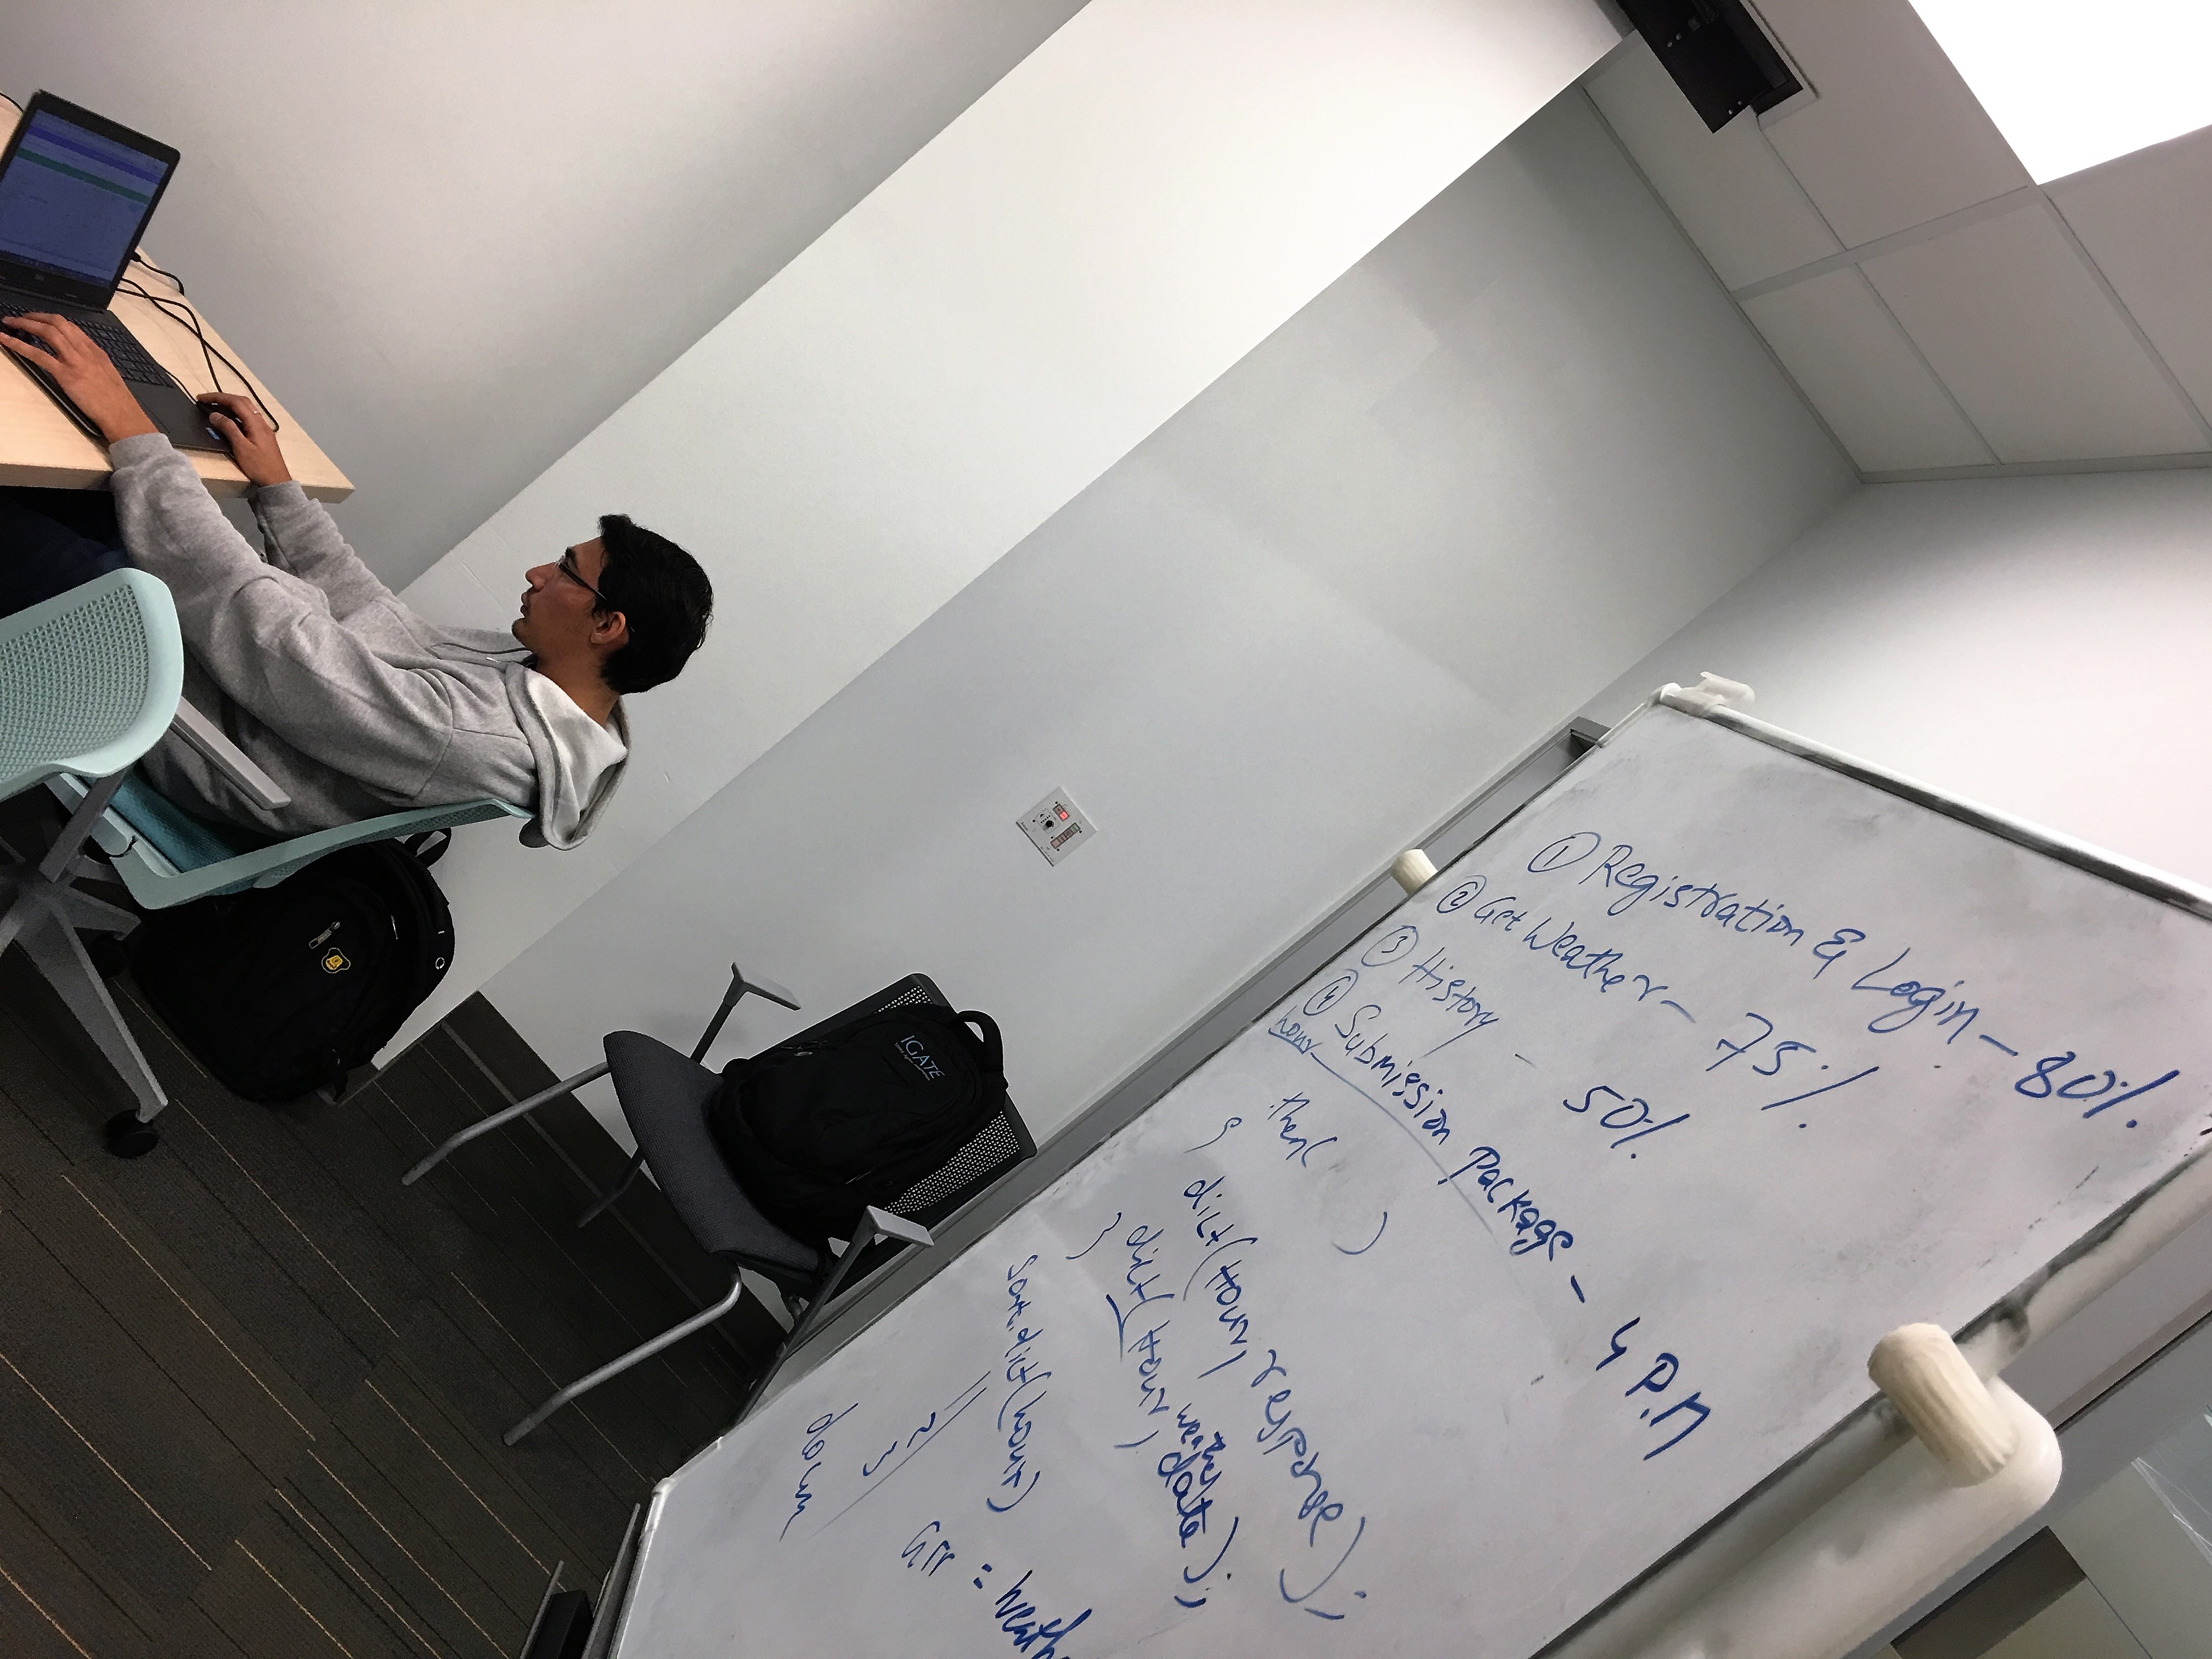 ① Registration & Login - 80%.
② Get Weather - 75%.
③ History - 50%.
④ Submission Package - 4 P.M
hour
then( )
dict(Hour, response);
dict(Hour, weather date);
Sort.dict(hour)
arr =
IGATE